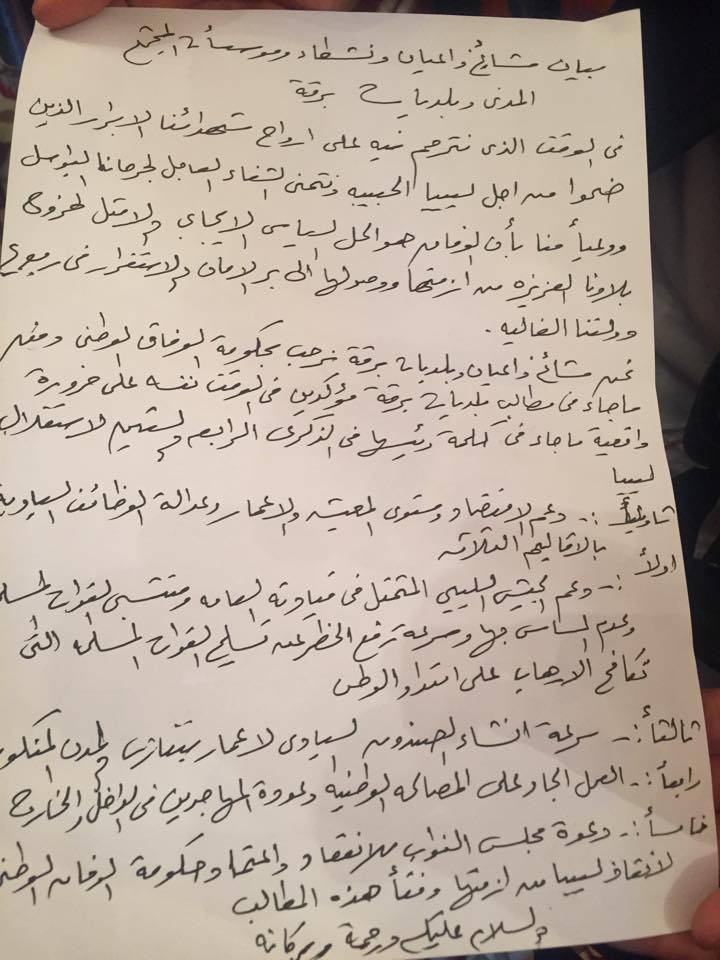 بيان مشائخ واعيان ونشطاء ومؤسسات المجتمع
المدنى وبلديات برقة
فى الوقت الذى نترحم فيه على ارواح شهدائنا الابرار الذين
ضحوا من اجل ليبيا الحبيبه ونتمنى الشفاء العاجل لجرحانا البواسل
ووعياً منا بأن الوفاق هو الحل السياسى الايجابى والامثل لخروج
بلادنا العزيزه من ازمتها ووصولها الى بر الامان والاستقرار فى ربوع
دولتنا الغاليه .
نحن مشائخ واعيان وبلديات برقة نرحب بحكومة الوفاق الوطنى وفق
ماجاء فى مطالب بلديات برقة مؤكدين فى الوقت نفسه على ضرورة
واقعية ماجاء فى كلمة رئيسها فى الذكرى الرابعه والستين لاستقلال
ليبيا
ثانياً :- دعم الاقتصاد ومستوى المعيشه والاعمار وعدالة الوظائف السياديه
بالاقاليم الثلاثه
اولاً :- دعم الجيش الليبي المتمثل فى قيادته العامه ومنتسبى القوات المسلحه
وعدم المساس بها وسرعة رفع الحظر عنه تسليح القوات المسلحه التى
تكافح الارهاب على امتداد الوطن
ثالثاً :- سرعة انشاء الصندوق السيادى لاعمار بنغازى والمدن المنكوبه
رابعاً :- العمل الجاد على المصالحه الوطنيه وعودة المهاجرين فى الداخل والخارج
خامساً :- دعوة مجلس النواب للانعقاد واعتماد حكومة الوفاق الوطنى
لانقاذ ليبيا من ازمتها وفقاً هذه المطالب
والسلام عليكم ورحمة وبركاته